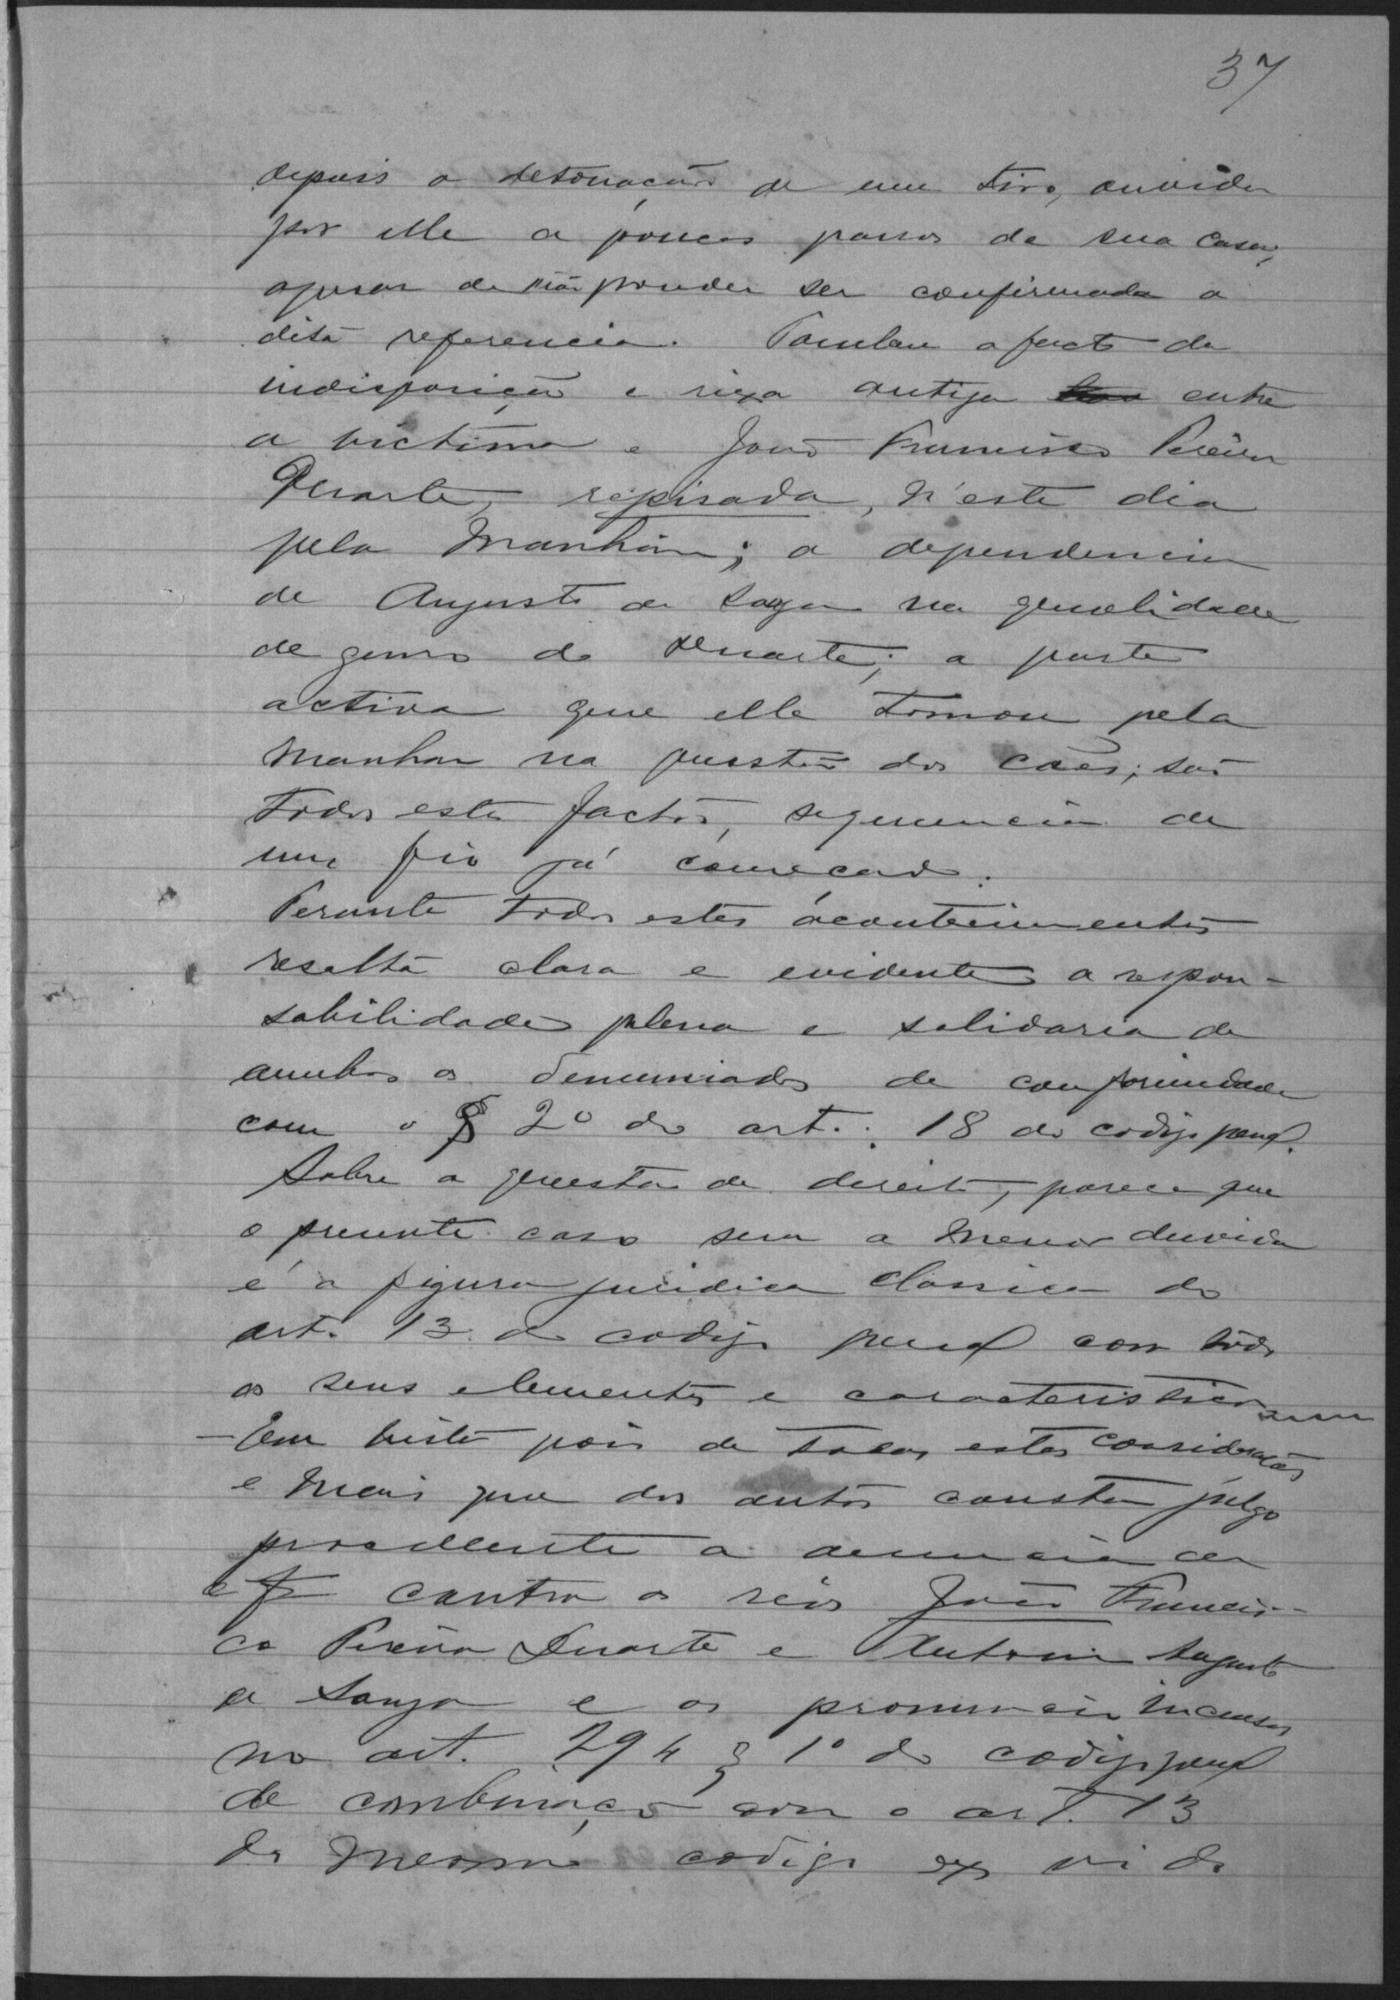 37
depois a detonação de um tiro, ouvida
por elle a poucos passos de sua casa,
apesar de não pouder ser confirmada a
dita referencia. Tambem o facto da
indisposição e rixa antiga entre
a victima e João Francisco Pereira
Duarte, repisada, n'este dia
pela manhãn; a dependencia
de Augusto de Souza na qualidade
de genro de Duarte; a parte
activa que elle tomou pela
manhan na questão dos cães; são
todos estes factos, sequencia de
um fio já começado.
Perante todos estes acontecimentos
resalta clara e evidente a respon-
sabilidade plena e solidaria de
ambos os denunciados de conformidade
com o § 2º do art. 18 do codigo penal.
Sobre a questão de direito, parece que
o presente caso sem a menor duvida
é a figura juridica classica do
art. 13 do codigo penal com todos
os seus elementos e caracteristicos
- Em vista pois de todas estas considerações
e mais que dos autos consta julgo
procedente a denuncia de
contra os réos João Francis-
co Pereira Duarte e Antonio Augusto
de Souza e os pronuncio incursos
no art. 294 § 1º do codigo penal
de combinação com o art. 13
do mesmo codigo ex vi do